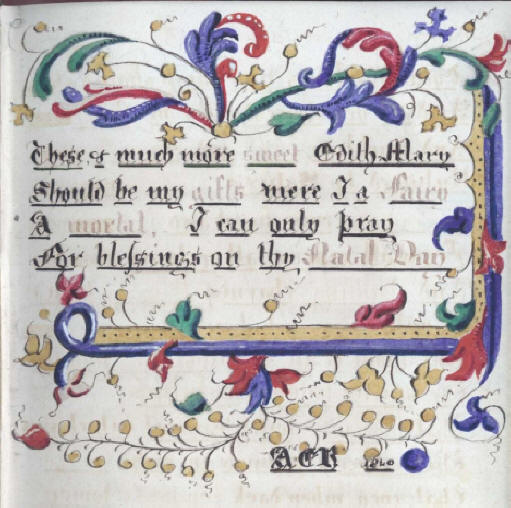 These & much more sweet Edith Mary
Should be my gifts were I a Fairy
A mortal, I can only pray
For blessings on thy Natal Day
AER 1860